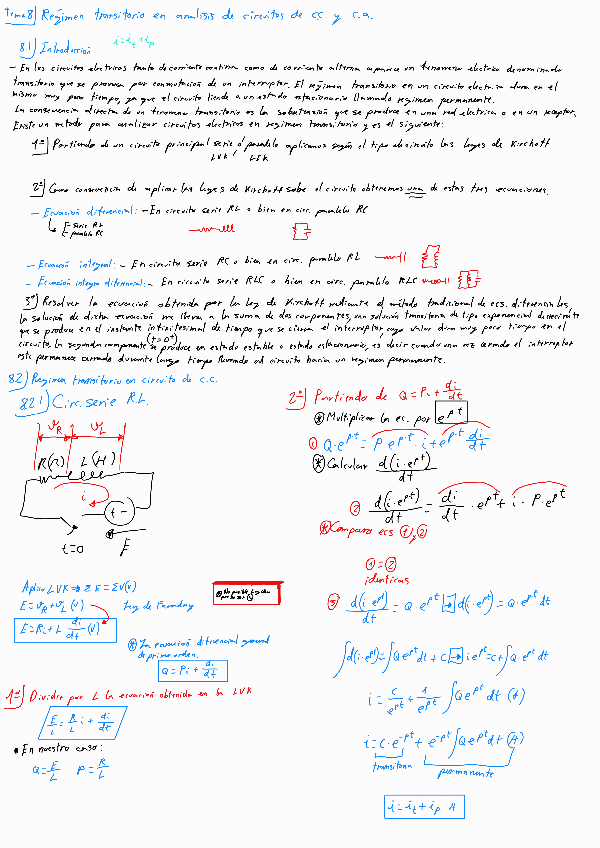 Tema 8) Regimen transitorio en analisis de circuitos de cc. y c.a.
8.1) Introducción i = it + ip
- En los circuitos electricos tanto de corriente continua como de corriente alterna aparece un fenomeno electrico denominado
transitorio que se provoca por conmutación de un interruptor. El regimen transitorio en un circuito electrico dura en el
mismo muy poco tiempo, ya que el circuito tiende a un estado estacionario llamado regimen permanente.
La consecuencia directa de un fenomeno transitorio es la que se produce en una red electrica o en un receptor.
Existe un metodo para analizar circuitos electricos en regimen transitorio y es el siguiente:
1º) Partiendo de un circuito principal serie ó paralelo aplicamos según el tipo de circuito las leyes de Kirchoff
LVK / LIK
2º) Como consecuencia de aplicar las leyes de Kirchoff sobre el circuito obtenemos una de estas tres ecuaciones.
- Ecuación diferencial: - En circuito serie RL o bien en circ. paralelo RC
serie RL
paralelo RC
- Ecuación integral: - En circuito serie RC o bien en circ. paralelo RL
- Ecuación integro diferencial: - En circuito serie RLC o bien en circ. paralelo RLC
3º) Resolver la ecuación obtenida por la ley de Kirchoff mediante el método tradicional de ecs. diferenciales,
la solución de dicha ecuación me lleva a la suma de dos componentes, una solución transitoria de tipo exponencial decreciente
que se produce en el instante infinitesimal de tiempo que se cierra el interruptor cuyo valor dura muy poco tiempo en el
circuito (t=0+). La segunda componente se produce en un estado estable o estado estacionario, es decir cuando una vez cerrado el interruptor
este permanece cerrado durante largo tiempo llevando al circuito hacia un regimen permanente.
8.2) Regimen transitorio en circuito de c.c.
8.2.1) Circ. serie RL.
VR VL
R(Ω) L(H)
i
+ -
t=0 E
Aplico LVK ⇒ Σ E = Σ V(v)
E = VR + VL (V) Ley de Faraday
E = Ri + L di/dt (V)
⊛ La ecuación diferencial general
de primer orden.
Q = Pi + di/dt
1º) Dividir por L la ecuación obtenida en la LVK.
E/L = R/L i + di/dt
• En nuestro caso:
Q = E/L P = R/L
2º) Partiendo de Q = Pi + di/dt
⊛ Multiplicar la ec. por e^Pt
① Q·e^Pt = P e^Pt · i + e^Pt di/dt
⊛ Calcular d(i·e^Pt)/dt
② d(i·e^Pt)/dt = di/dt · e^Pt + i · P · e^Pt
⊛ Comparo ecs ① y ②
① = ②
identicas
③ d(i·e^Pt)/dt = Q·e^Pt → d(i·e^Pt) = Q·e^Pt dt
∫d(i·e^Pt) = ∫Q e^Pt dt + C → i e^Pt = C + ∫Q·e^Pt dt
i = C/e^Pt + 1/e^Pt ∫Q e^Pt dt (A)
i = C·e^-Pt + e^-Pt ∫Q e^Pt dt (A)
transitoria permanente
i = it + ip A